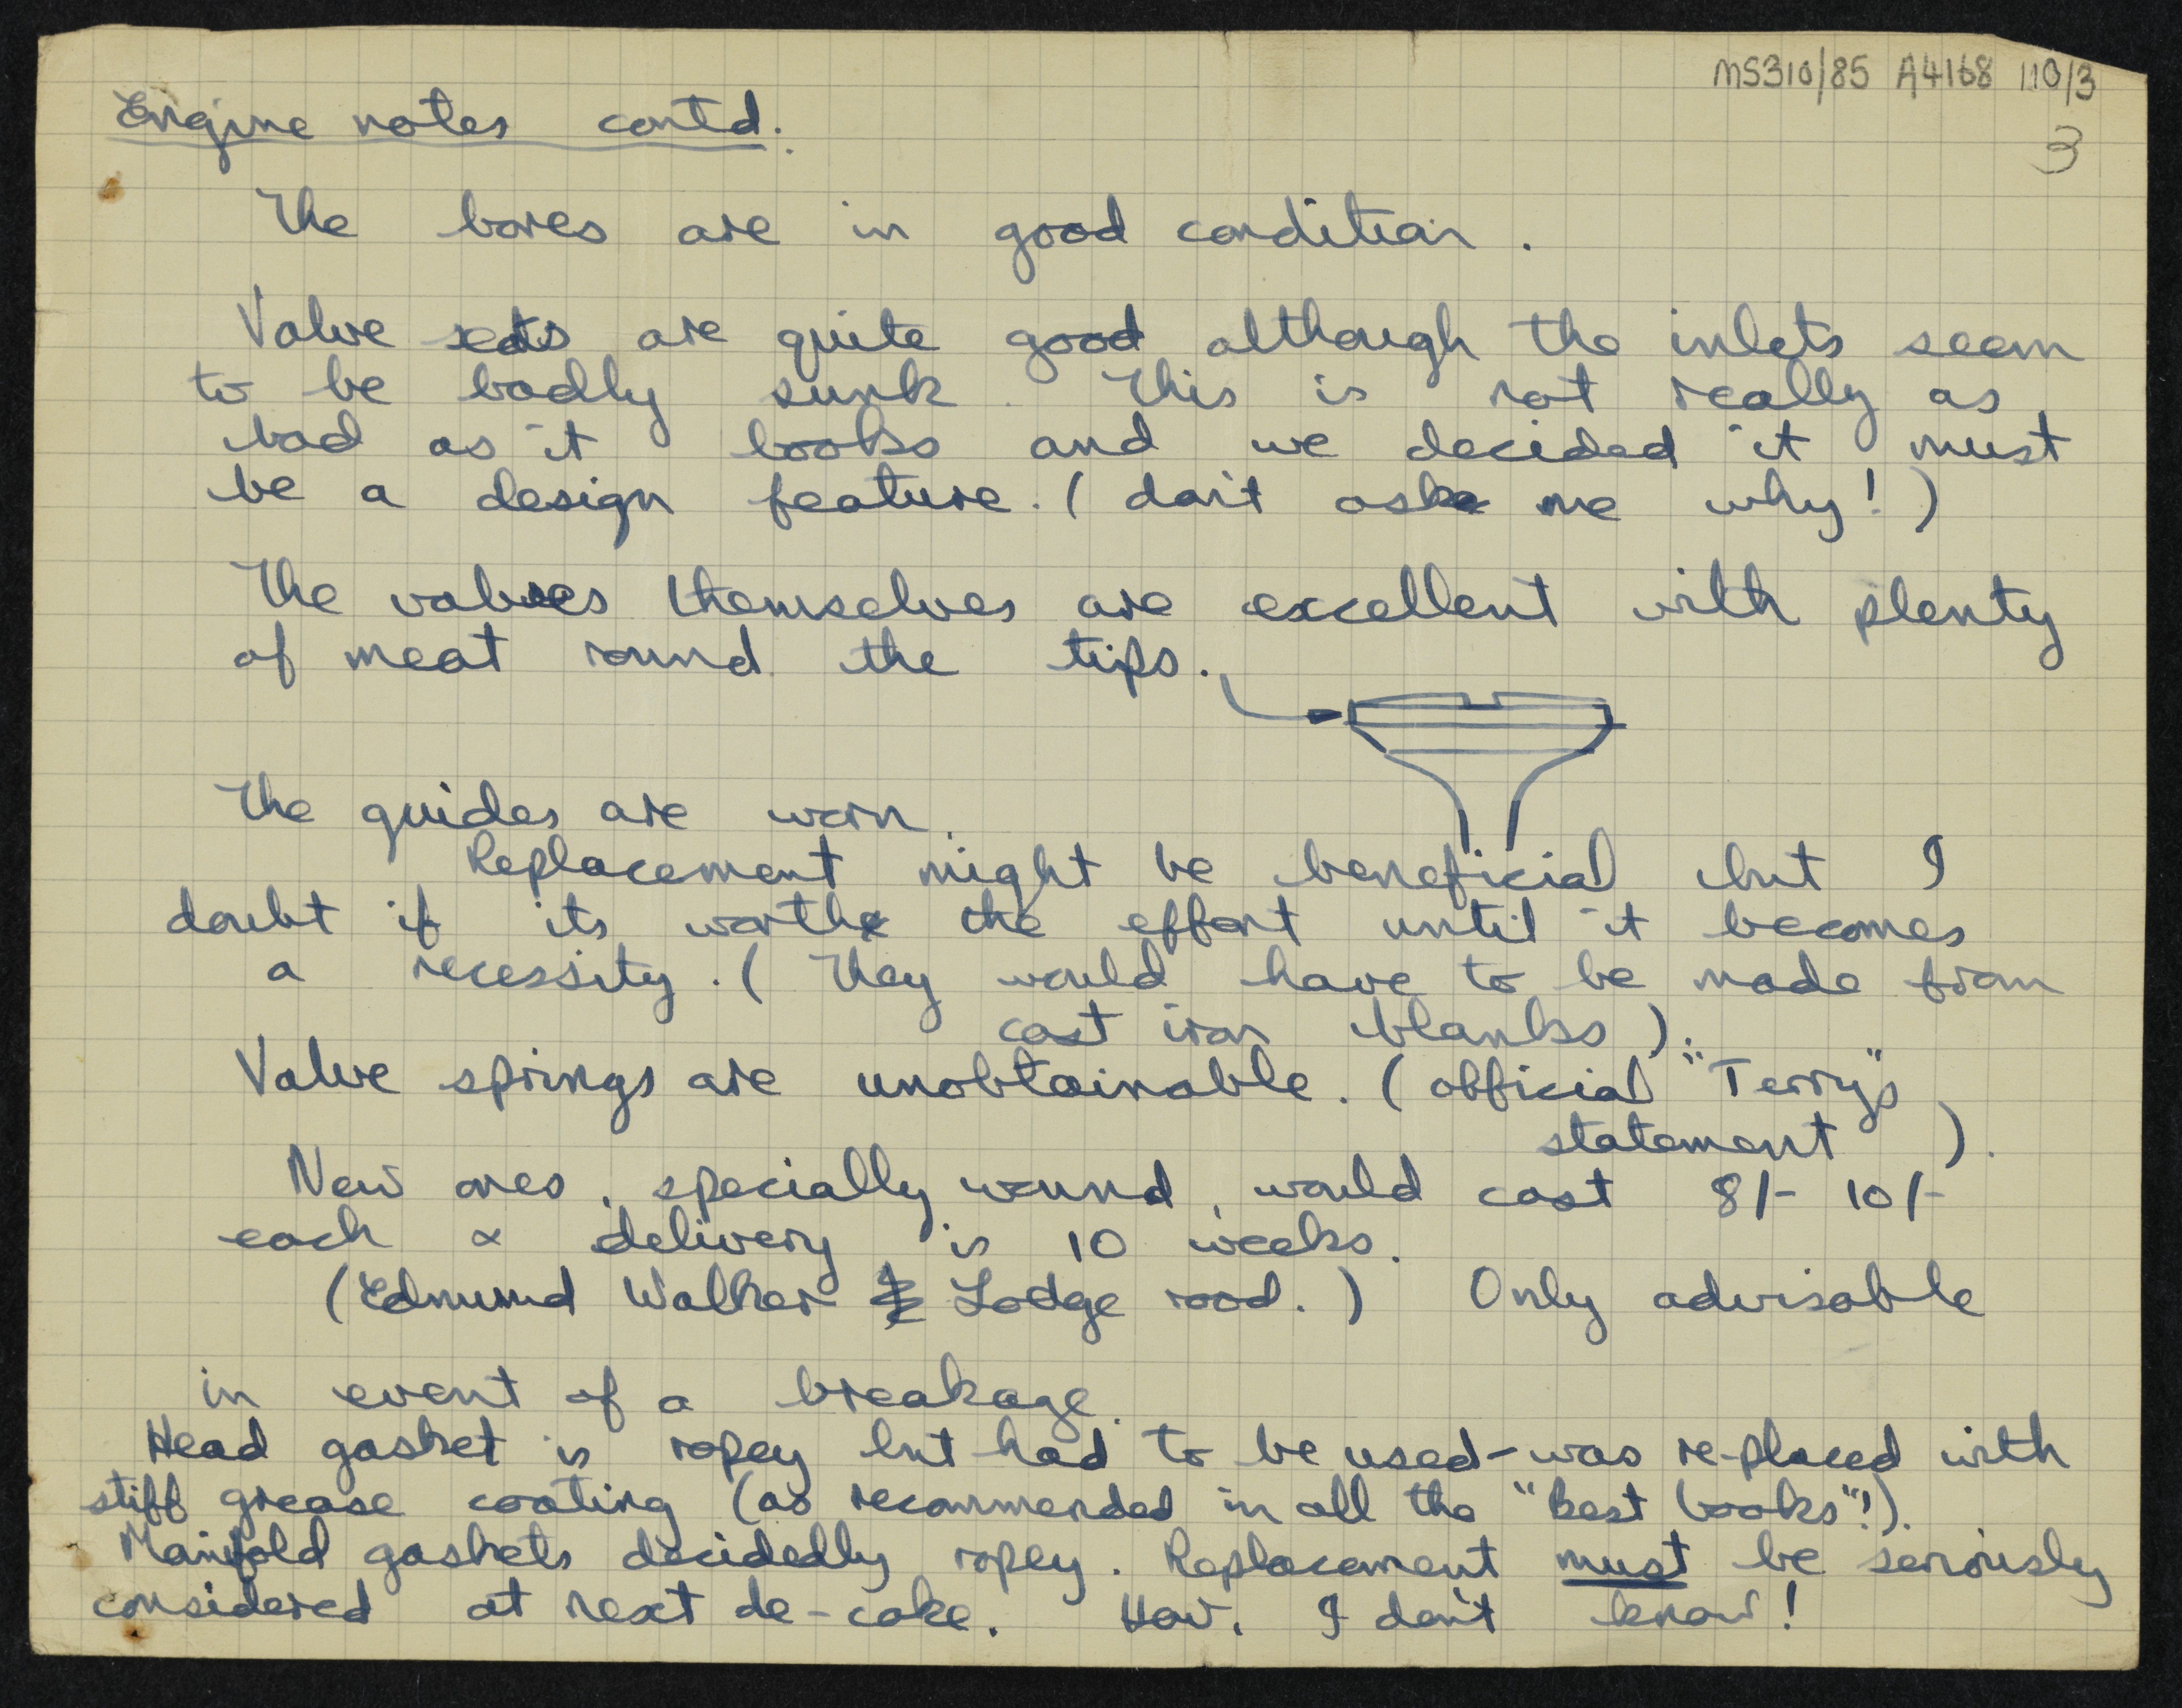 MS310/85 A4168 110/3
3
Engine notes contd.
The bores are in good condition.
Valve seats are quite good although the inlets seem
to be badly sunk. This is not really as
bad as it looks and we decided it must
be a design feature. (don't ask me why!)
The valves themselves are excellent with plenty
of meat round the tips.
The guides are worn.
Replacement might be beneficial but I
doubt if its worth the effort until it becomes
a necessity. (They would have to be made from
cast iron blanks).
Valve springs are unobtainable. (official "Terry"s
statement).
New ones, specially wound, would cost 8/- 10/-
each & delivery is 10 weeks.
(Edmund Walker Lodge road.) Only advisable
in event of a breakage.
Head gasket is ropey but had to be used-was re-placed with
stiff grease coating (as recommended in all the "best books"!).
Manifold gaskets decidedly ropey. Replacement must be seriously
considered at next de-coke. How, I don't know!